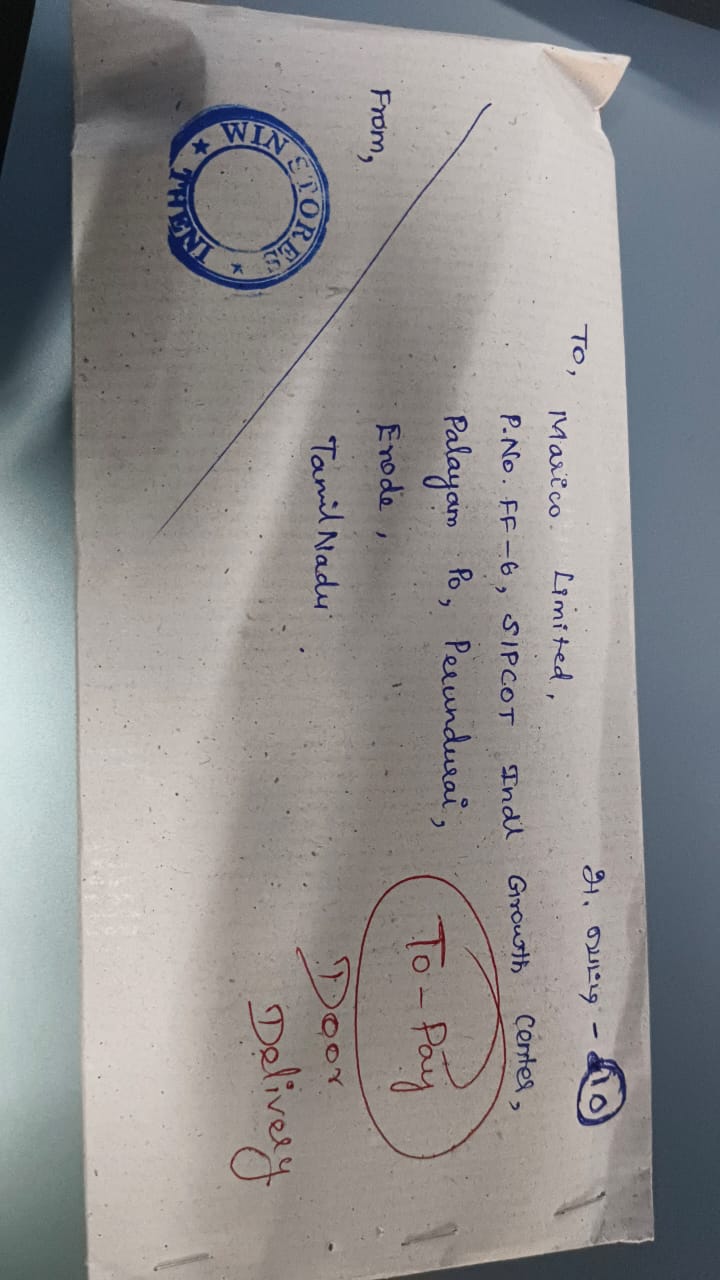 அ. பெட்டி - 10
To,
Marico Limited,
P.No. FF-6, SIPCOT Indl Growth Center,
Palayam Po, Perundurai,
Erode,
Tamil Nadu.
To-Pay
Door
Delivery
From,
WIN STORES
THENI